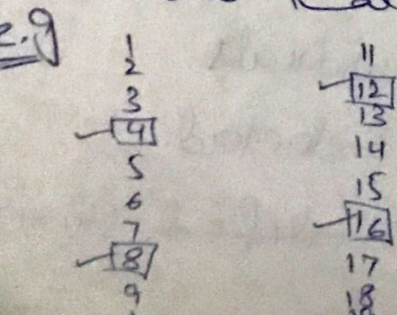 e.g
1
2
3
4
5
6
7
8
9
11
12
13
14
15
16
17
18